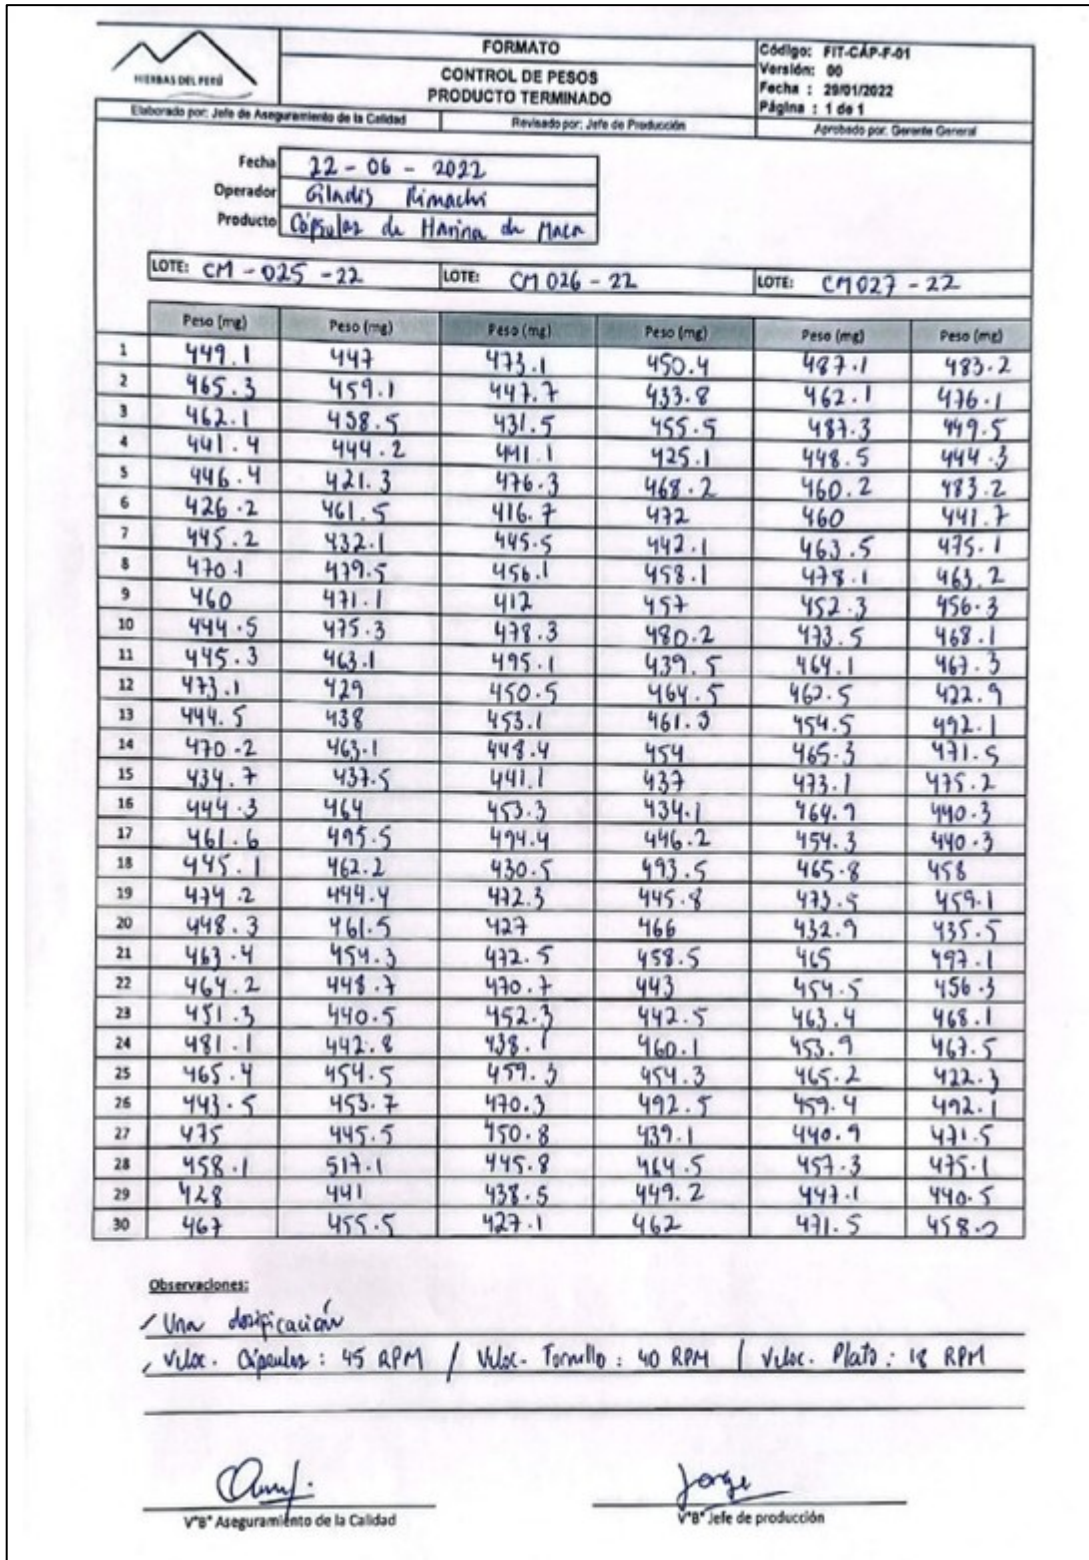 HIERBAS DEL PERÚ
FORMATO
CONTROL DE PESOS
PRODUCTO TERMINADO
Código: FIT-CÁP-F-01
Versión: 00
Fecha : 29/01/2022
Página : 1 de 1
Elaborado por: Jefe de Aseguramiento de la Calidad Revisado por: Jefe de Producción Aprobado por: Gerente General
Fecha 22 - 06 - 2022
Operador Giladis Rimachi
Producto Cápsulas de Harina de Maca
LOTE: CM - 025 - 22 LOTE: CM 026 - 22 LOTE: CM 027 - 22
Peso (mg) Peso (mg) Peso (mg) Peso (mg) Peso (mg) Peso (mg)
1 449.1 447 473.1 450.4 487.1 483.2
2 465.3 459.1 447.7 433.8 462.1 476.1
3 462.1 458.5 431.5 455.5 487.3 449.5
4 441.4 444.2 441.1 425.1 448.5 444.3
5 446.4 421.3 476.3 468.2 460.2 483.2
6 426.2 461.5 416.7 472 460 441.7
7 445.2 432.1 445.5 442.1 463.5 475.1
8 470.1 479.5 456.1 458.1 478.1 463.2
9 460 471.1 412 457 452.3 456.3
10 444.5 475.3 478.3 480.2 473.5 468.1
11 445.3 463.1 495.1 439.5 464.1 467.3
12 473.1 429 450.5 464.5 462.5 422.9
13 444.5 438 453.1 461.3 454.5 492.1
14 470.2 463.1 448.4 454 465.3 471.5
15 434.7 437.5 441.1 437 473.1 475.2
16 444.3 464 453.3 434.1 464.9 440.3
17 461.6 495.5 494.4 446.2 454.3 440.3
18 445.1 462.2 430.5 493.5 465.8 458
19 474.2 444.4 472.3 445.8 473.5 459.1
20 448.3 461.5 427 466 432.9 435.5
21 463.4 454.3 472.5 458.5 465 497.1
22 464.2 448.7 470.7 443 454.5 456.3
23 451.3 440.5 452.3 442.5 463.4 468.1
24 481.1 442.8 438.1 460.1 453.9 467.5
25 465.4 454.5 459.3 454.3 465.2 422.3
26 443.5 453.7 470.3 492.5 459.4 492.1
27 475 445.5 450.8 439.1 440.9 471.5
28 458.1 517.1 445.8 464.5 457.3 475.1
29 428 441 438.5 449.2 447.1 440.5
30 467 455.5 427.1 462 471.5
Observaciones:
/ Una dosificación
/ Veloc. Cápsulas : 45 RPM / Veloc. Tornillo : 40 RPM / Veloc. Plato : 18 RPM
Jorge
V°B° Aseguramiento de la Calidad V°B° Jefe de producción